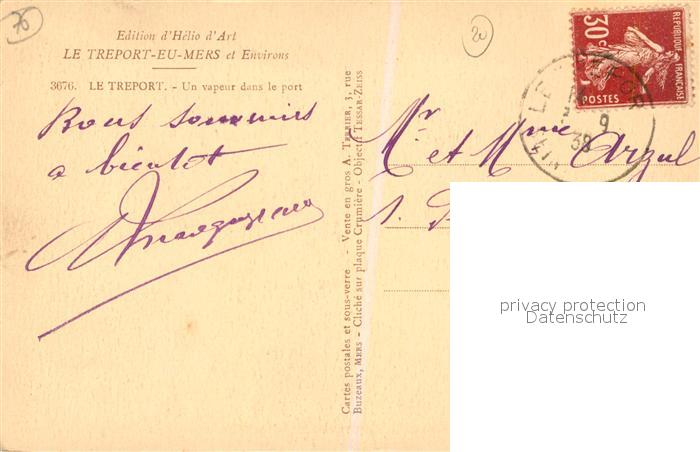 76
20
Edition d'Hélio d'Art
LE TREPORT-EU-MERS et Environs
3676. LE TREPORT. - Un vapeur dans le port
Bons
a bientot
Cartes postales et sous-verre - Vente en gros A. TERRIER, 3, rue
Buzeaux, MERS - Cliché sur plaque Crumière - Objectif TESSAR-ZEISS
30 c
REPUBLIQUE FRANÇAISE
POSTES
LE TREPORT
9
38
Mr
et Mme Arzul
privacy protection
Datenschutz